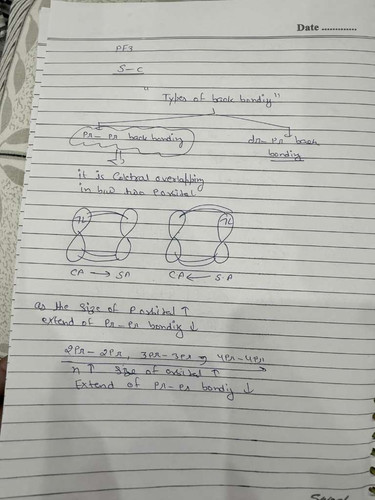 Date .............
PF3
S-C
"Types of back bonding"
Pπ-Pπ back bonding
dπ-Pπ back
bonding
it is Coletral overlapping
in b/w two P orbital
1L
1L
CA → SA
CA ← S.A
as the size of P orbital ↑
extend of Pπ-Pπ bonding ↓
2Pπ-2Pπ, 3Pπ-3Pπ, 4Pπ-4Pπ
n ↑ size of orbital ↑
Extend of Pπ-Pπ bonding ↓